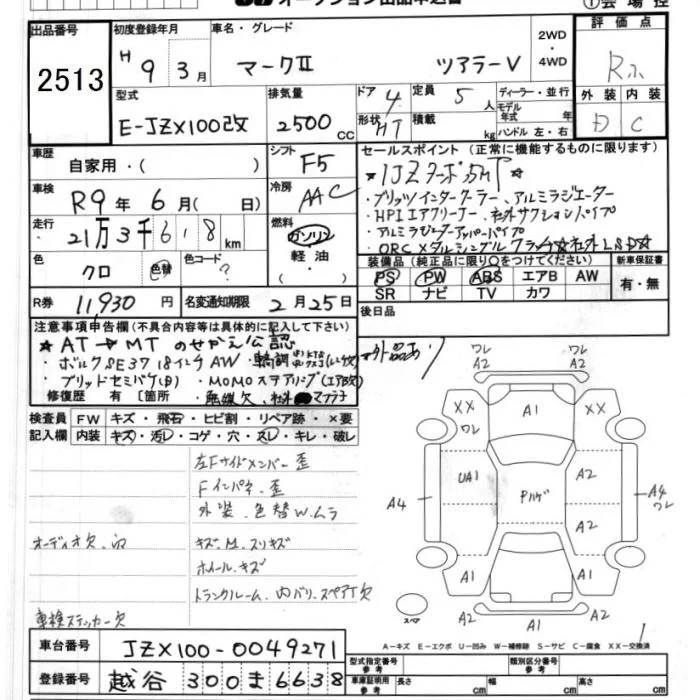 出品番号
2513
初度登録年月
H 9年 3月
車名・グレード
マークⅡ ツアラーV
2WD・4WD
評価点
外装 内装
D C
型式
E-JZX100改
排気量
2500 CC
ドア 4
形状 HT
定員 5 人
積載 kg
ディーラー・並行
モデル年式 年式
ハンドル 左・右
車歴
自家用・( )
シフト
F5
車検
R9年 6月( 日)
冷房
AAC
走行
21万3千618 km
燃料
ガソリン
軽油
色
クロ 色替
色コード
?
R券 11,930円
名変通知期限 2月25日
セールスポイント (正常に機能するものに限ります)
★1JZターボ5MT★
・ブリッツインタークーラー、アルミラジエーター
・HPIエアクリーナー・社外サクションパイプ
・アルミラジエーターアッパーパイプ
・ORCメタルシングルクラッチ☆社外LSD☆
装備品 (純正品に限り○をつけてください)
PS PW ABS エアB AW
SR ナビ TV カワ
新車保証書
有・無
後日品
注意事項申告欄 (不具合内容等は具体的に記入して下さい)
★AT→MTのせかえ公認
・ボルクSE37 18インチAW・車高調
・ブリッドセミバケ・MOMOステアリング(エアB欠)
修復歴 有 [箇所 ・無線欠、社外マフラー
外品あり
検査員記入欄
FW キズ・飛石・ヒビ割・リペア跡・×要
内装 キズ・汚レ・コゲ・穴・スレ・キレ・破レ
左Fサイドメンバー歪
Fインパネ歪
外装、色替W.ムラ
オーディオ欠
キズ.M.スリキズ
ホイールキズ
トランクルーム、内バリ、スペアT欠
車検ステッカー欠
ワレ A2
ワレ A2
XX ワレ
A1
XX
UA1
A2
A4
A2
A4 ワレ
A1
A1
A2
A1
A2
スペア
A-キズ E-エクボ U-凹み W-補修跡 S-サビ C-腐食 XX-交換済
車台番号 JZX100-0049271
登録番号 越谷 300 ま 6638
型式指定番号 参考
類別区分番号 参考
車庫証明用 参考
長さ cm
幅 cm
高さ cm